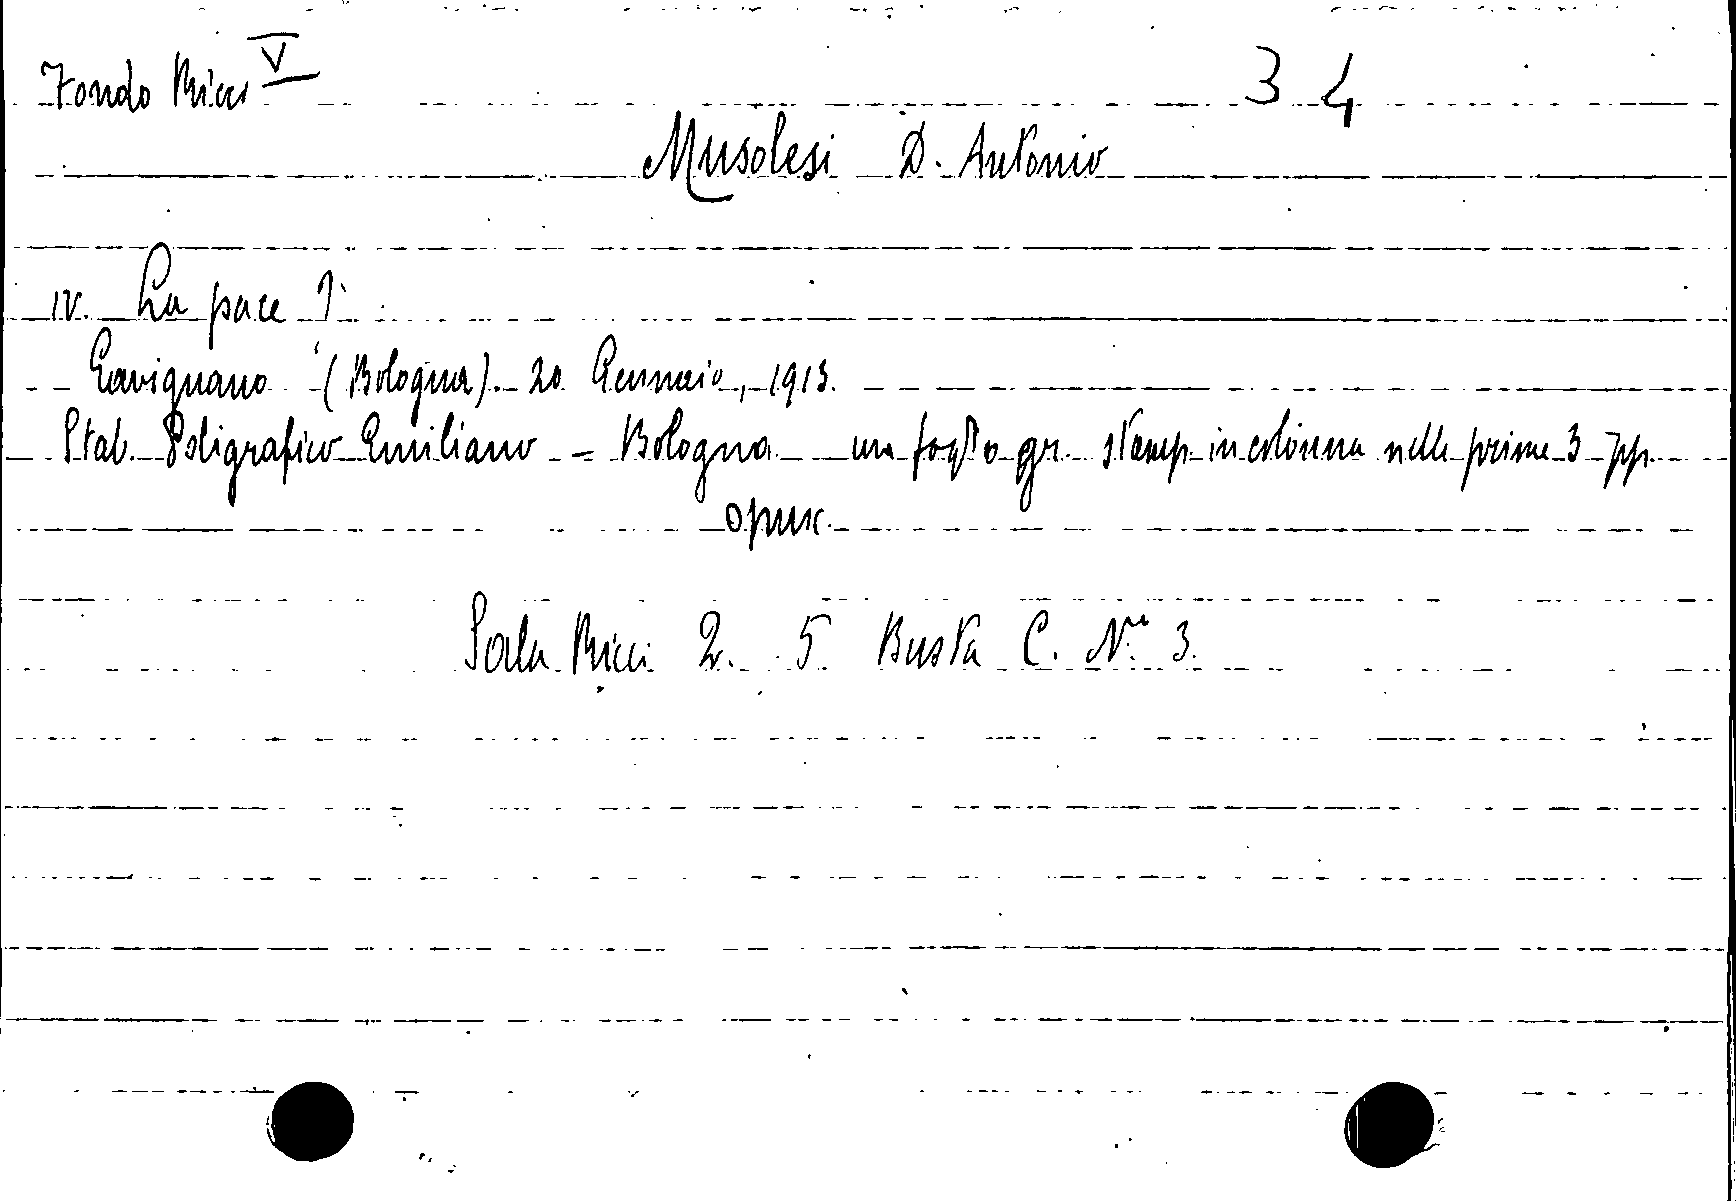 Fondo Ricci V 34
Musolesi D. Antonio
IV. La pace!
Gavignano (Bologna). 20 Gennaio, 1913.
Stab. Poligrafico Emiliano = Bologna un foglio gr. stamp. in colonna nelle prime 3 pp.
opusc.
Sala Ricci 2. 5 Busta C. N.º 3.